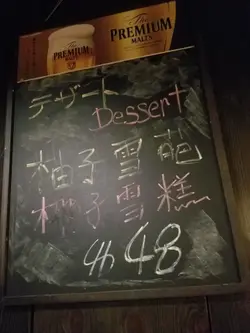 The
PREMIUM
MALT'S
The
PREMIUM
MALT'S
デザート
Dessert
柚子雪葩
椰子雪糕
48